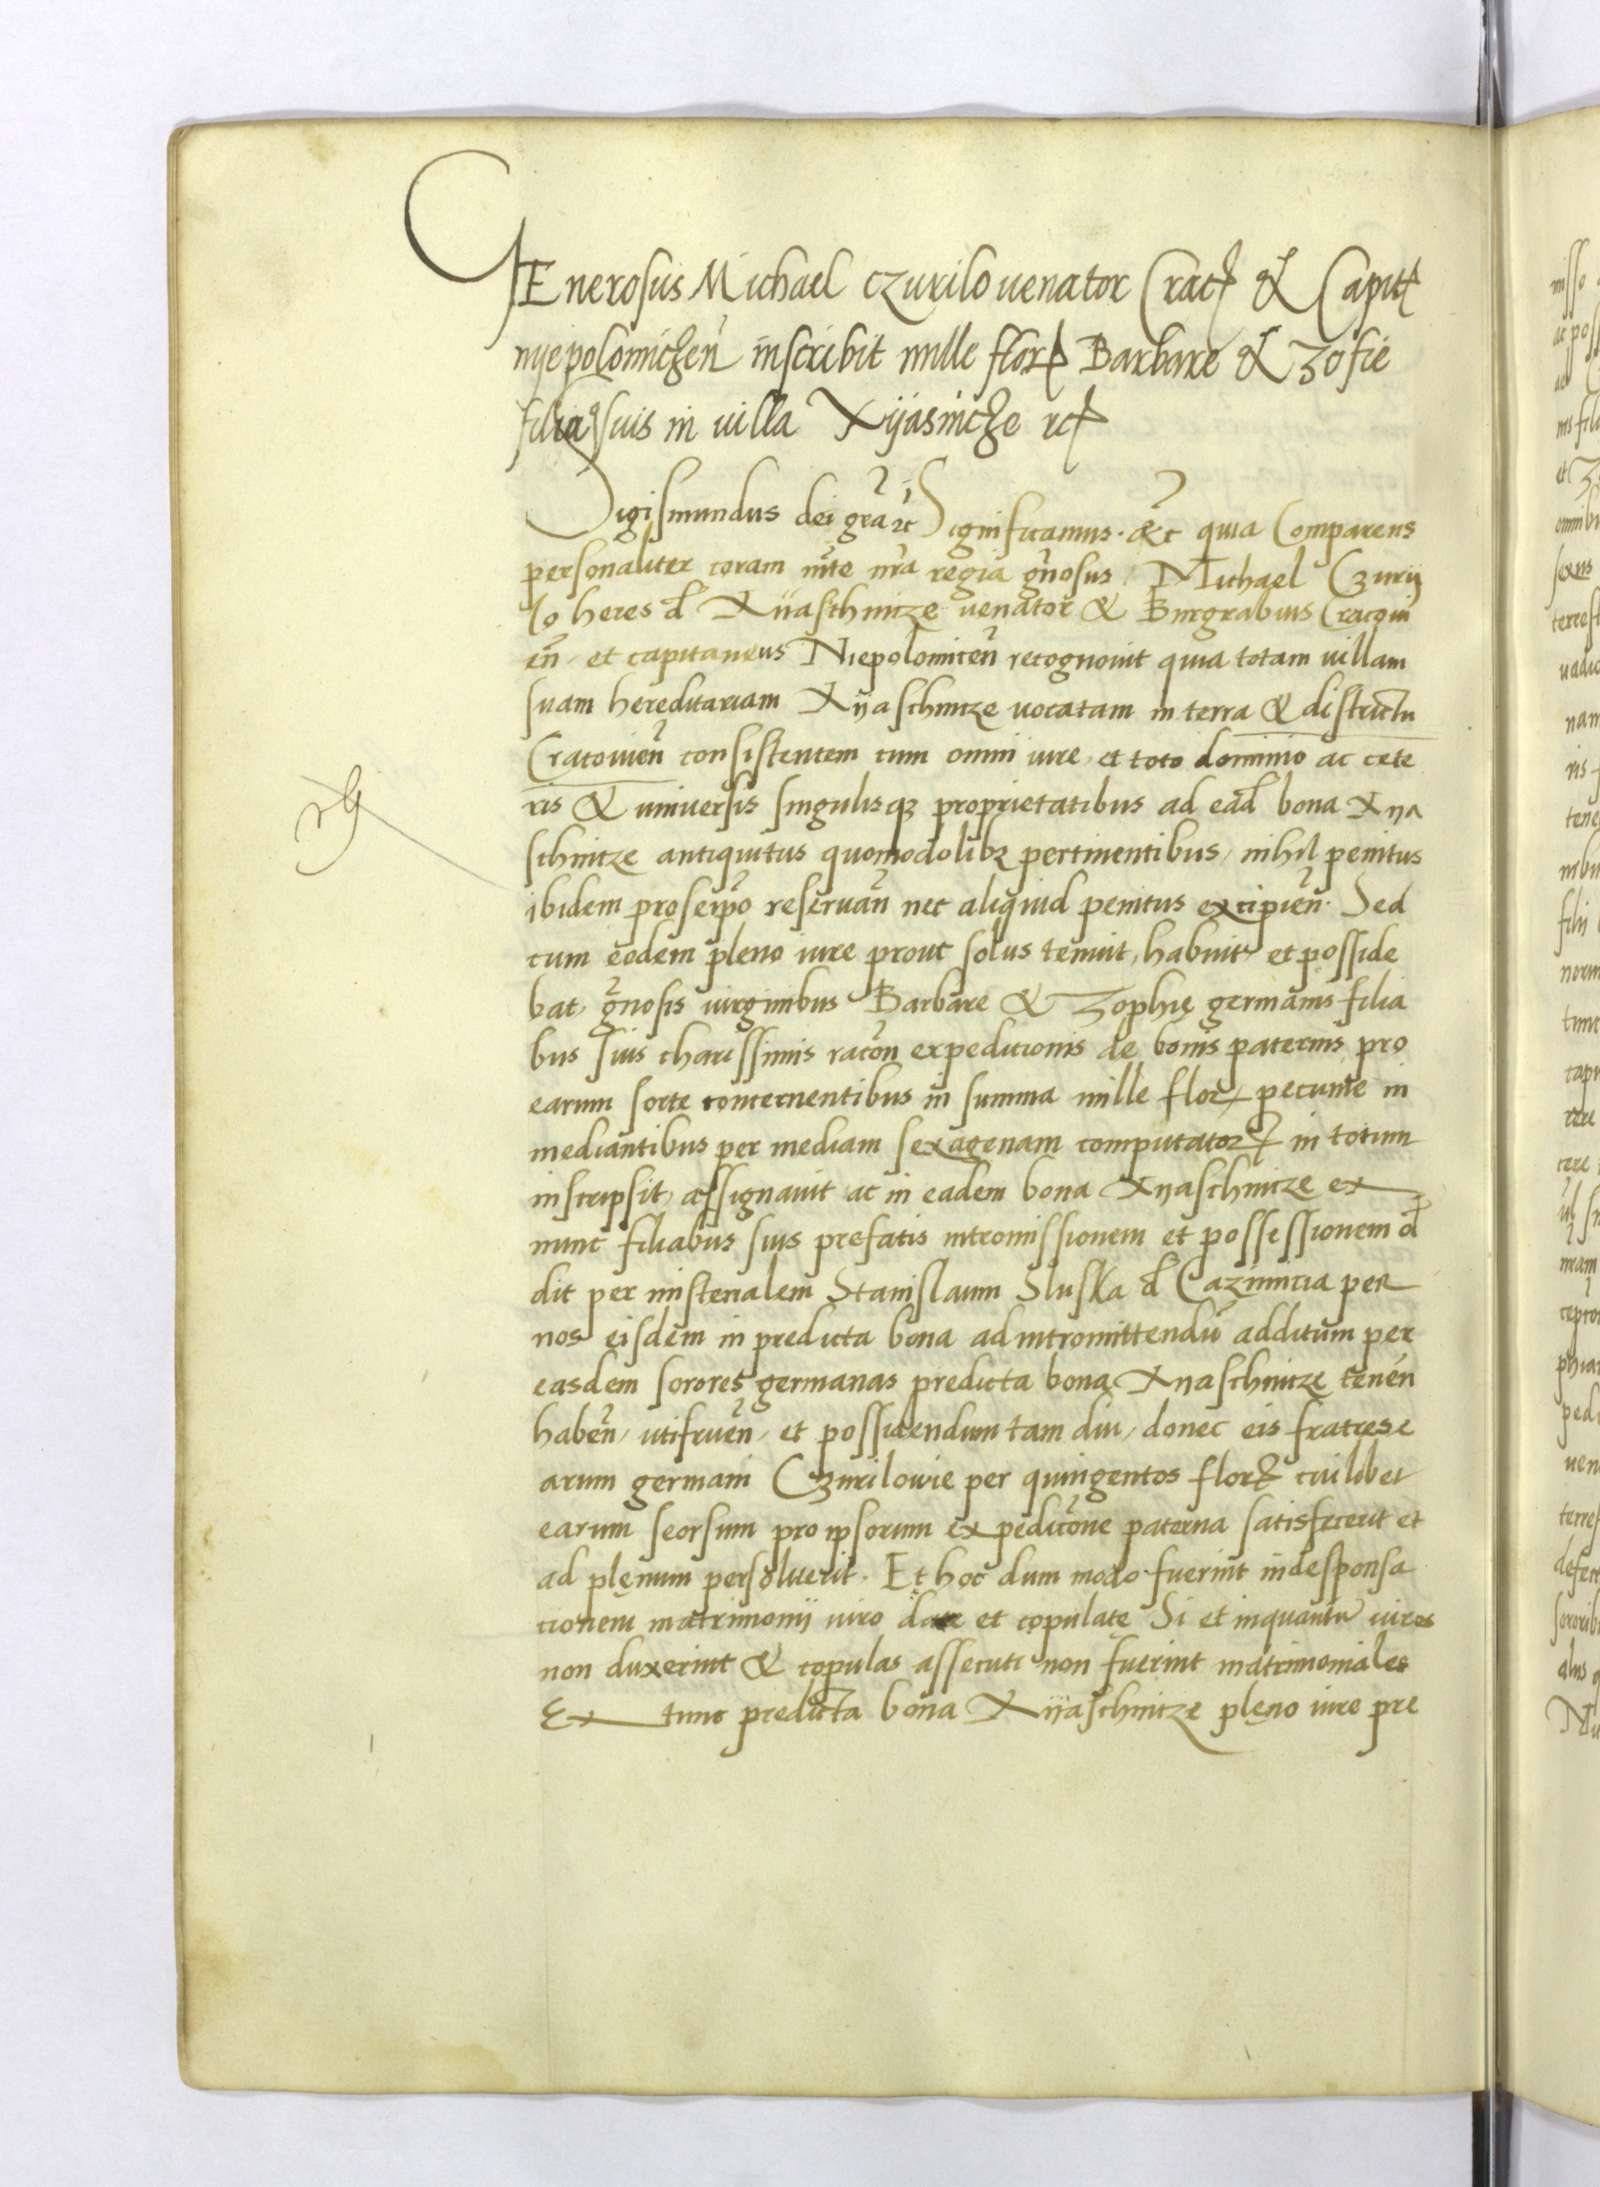 GEnerosus Michael Czurilo venator Crac̃ & Capit̃
nyepolomiczen̄ inscribit mille flor̃ Barbare & Zofie
filiabus suis in villa Xyasnicze rc̃
Sigismundus dei gr̄a rc̄ Significamus. &c quia Comparens
personaliter coram mt̄e nr̄a regia gn̄osus Michael Czurij
lo heres d̄ Xyaschnicze venator & Burgrabius Cracoui
en̄. et capitaneus Niepolomicen̄ recognouit quia totam uillam
suam hereditariam Xyaschnicze uocatam in terra & districtu
Cracouien̄ consistentem cum omni iure, et toto dominio ac cete
ris & uniuersis singulisq3 proprietatibus ad ead̄ bona Xya
schnicze antiquitus quomodolib3 pertinentibus, nihil penitus
ibidem pro seip̄o reseruan̄ nec aliquid penitus excipien̄. Sed
cum eodem pleno iure prout solus tenuit, habuit et posside
bat, gn̄osis uirginibus Barbare & Zophię germanis filia
bus suis charissimis racōn expeditionis de bonis paternis pro
earum sorte concernentibus in summa mille flor̃ pecunie in
mediantibus per mediam sexagenam computator̃ in totum
inscripsit, assignauit ac in eadem bona Xyaschnicze ex
nunc filiabus suis prefatis intromissionem et possessionem d̄
dit per ministerialem Stanislaum Sluska d̄ Cazimiria per
nos eisdem in predicta bona ad intromittendū additum per
easdem sorores germanas predicta bona Xyaschnicze tenen̄
haben̄, utifruen̄, et possidendum tam diu, donec eis fratres e
arum germani Czurilowie per quingentos flor̃ cuilibet
earum seorsum pro ipsorum expedicōne paterna satisfecerit et
ad plęnum persoluerit. Et hoc dum modo fuerint in desponsa
cionem matrimonij uiro date et copulatę Si et inquantū uiros
non duxerint & copulas assecuti non fuerint matrimoniales
Ex tunc predicta bona Xyaschnicze plęno iure pre